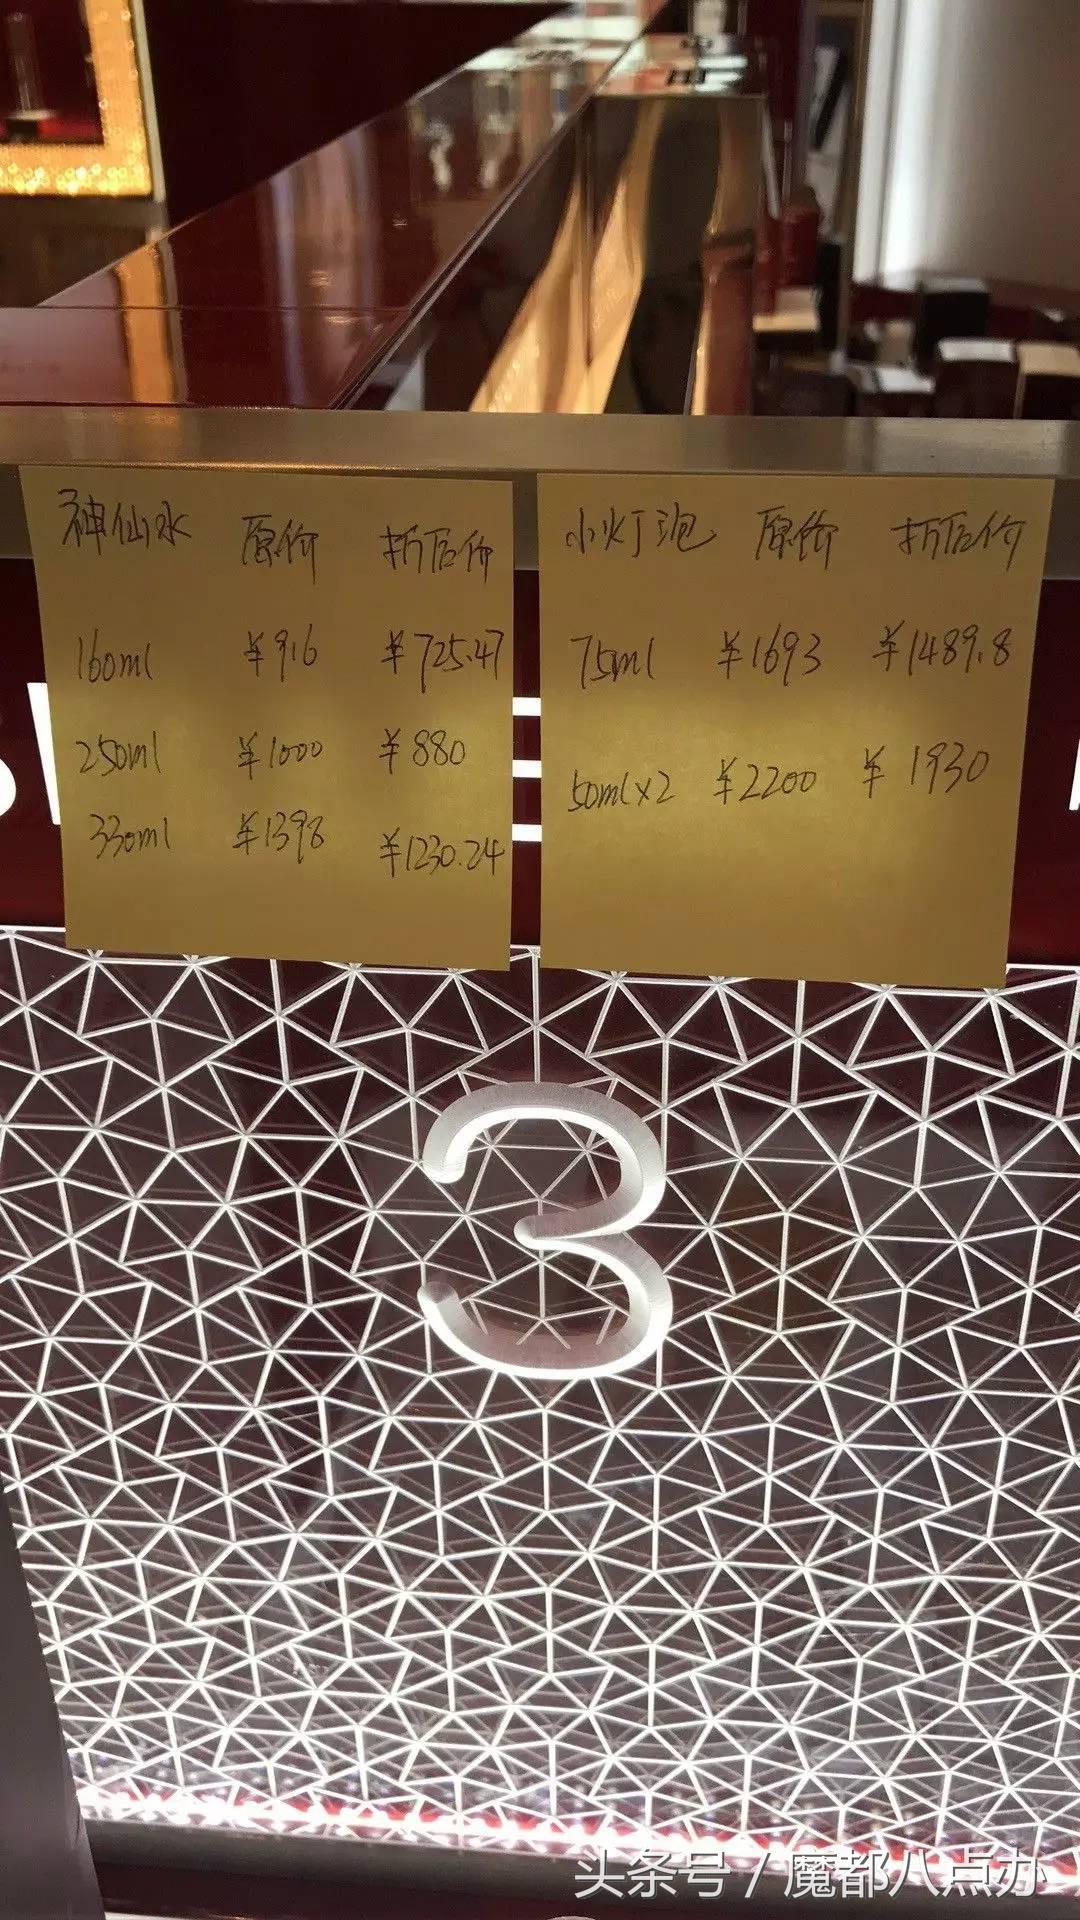 神仙水 原价 折后价
160ml ¥916 ¥725.47
250ml ¥1000 ¥880
330ml ¥1398 ¥1230.24
小灯泡 原价 折后价
75ml ¥1693 ¥1489.8
50ml×2 ¥2200 ¥1930
3
头条号 / 魔都八点办